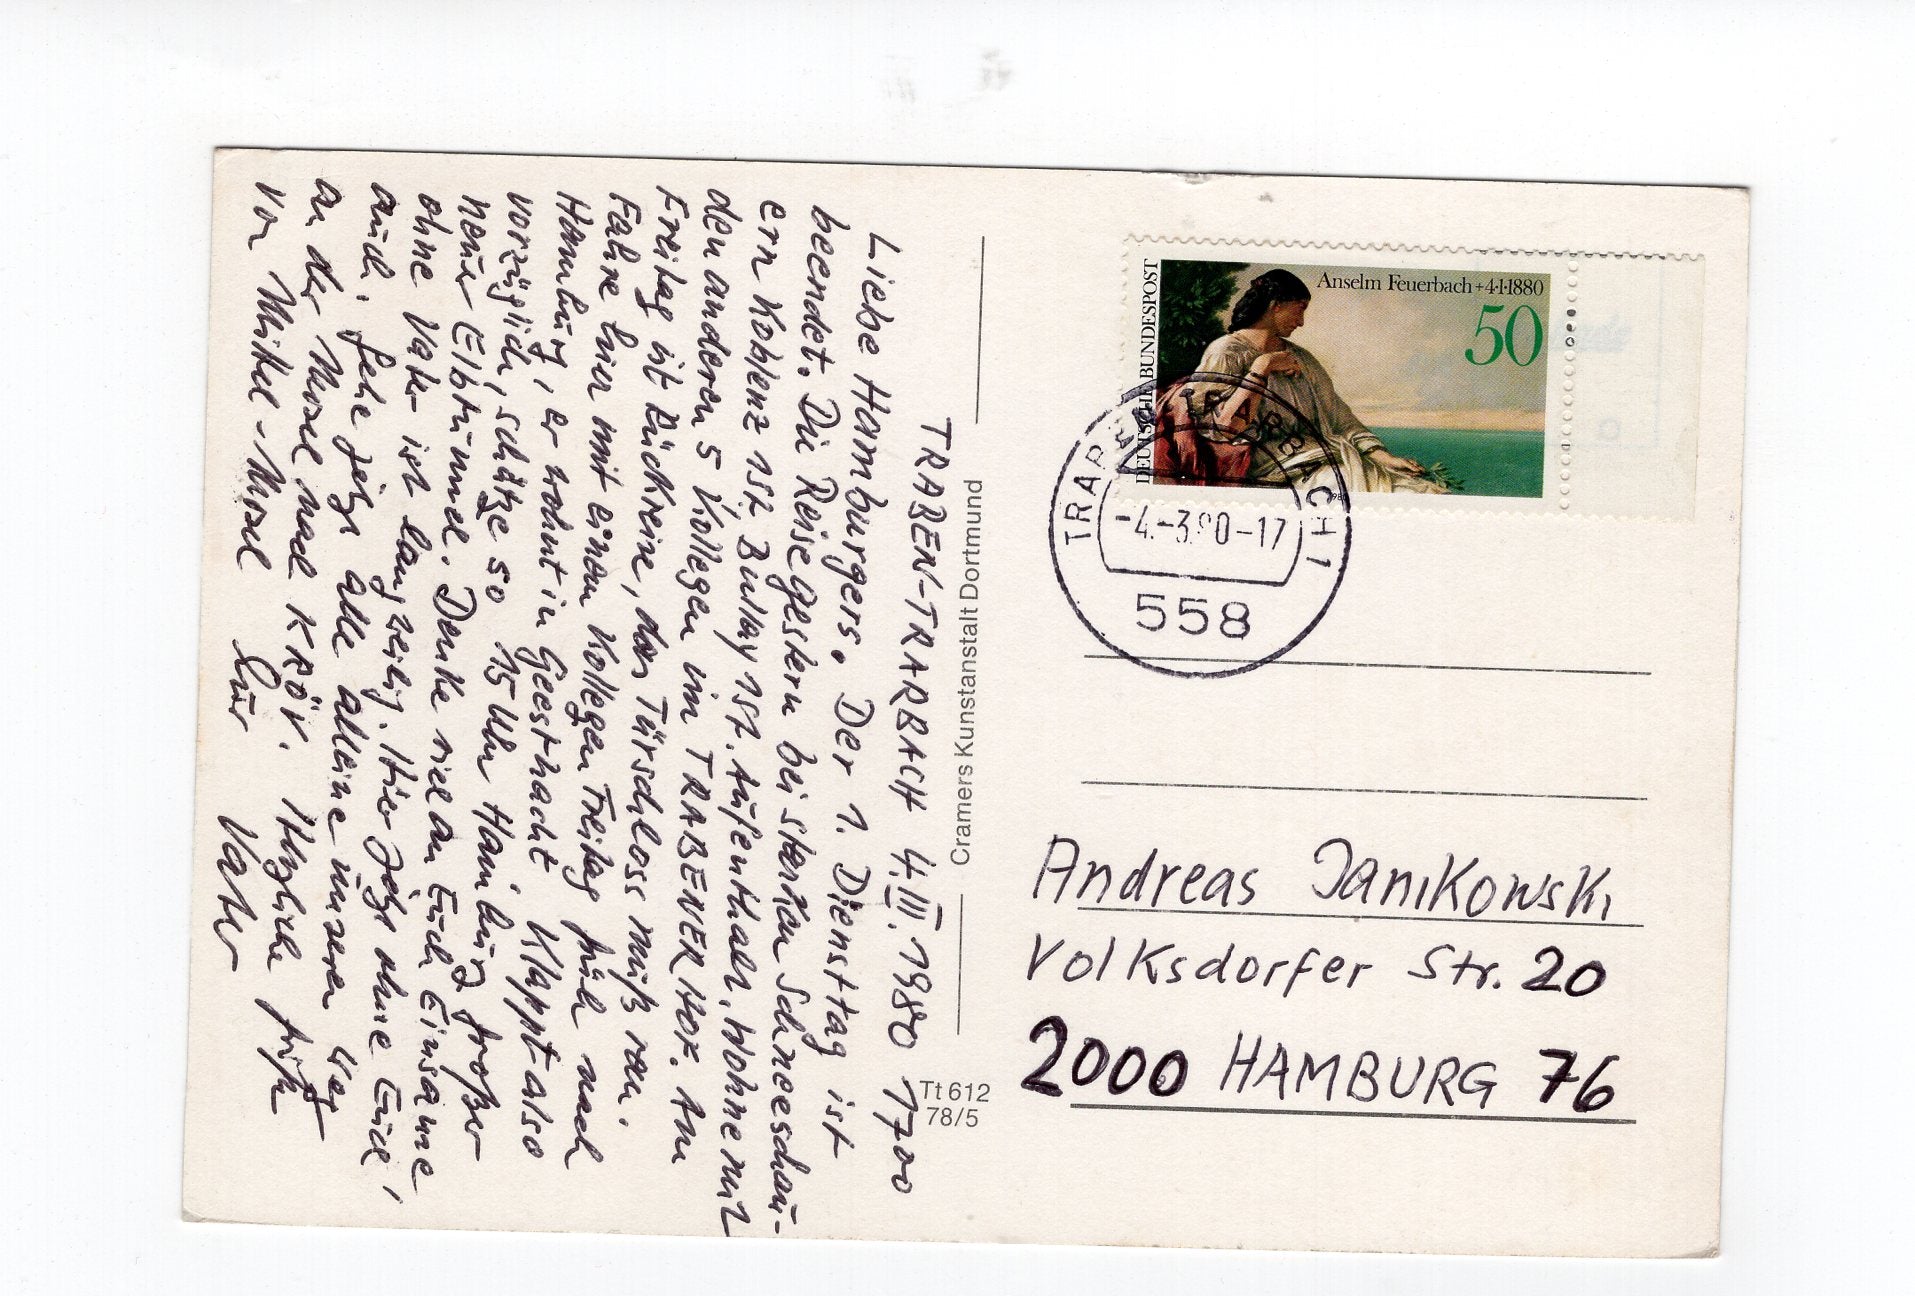 TRABEN-TRARBACH 4.III.1980 1700
Liebe Hamburgers. Der 1. Diensttag ist
beendet. Die Reise gestern bei starken Schneeschau-
ern Koblenz ist Bullay ist. Aufenthalt. Wohne mit
den anderen 5 Kollegen im TRABENER HOF. Am
Freitag ist Rückreise, das Türschloss muß ran.
Fahre hier mit einem Kollegen Freitag früh nach
Hamburg, er wohnt in Geesthacht Klappt also
vorzüglich, schätze so 15 Uhr Hamburg großer
neuer Elbtunnel. Denke viel an Euch Einsame
ohne Vater ist langweilig. Hier jetzt ohne Euch,
auch. Gehe jetzt alle alleine unseren Weg
an der Mosel nach KRÖV. Herzliche Grüße
von Mittel-Mosel Eür Vater
Cramers Kunstanstalt Dortmund
Tt 612
78/5
Anselm Feuerbach +4·1·1880
50
DEUTSCHE BUNDESPOST
TRABEN-TRARBACH 1
-4.-3.80-17
558
Andreas Janikowski
Volksdorfer Str. 20
2000 HAMBURG 76